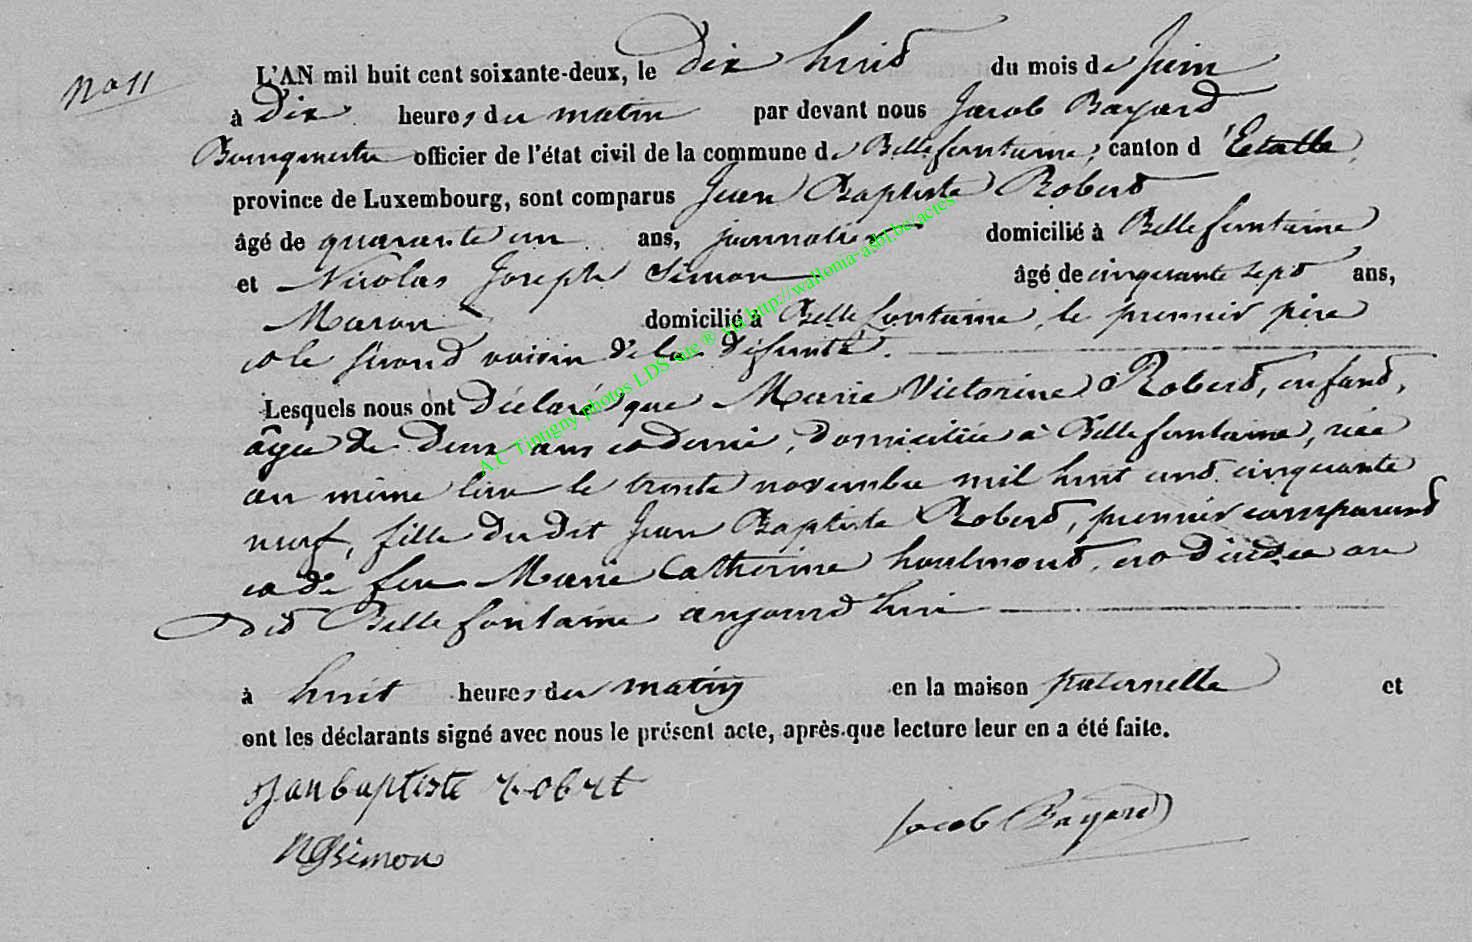 No 11
L'AN mil huit cent soixante-deux, le dix huit du mois de Juin
à Dix heures du matin par devant nous Jacob Bayard
Bourgmestre officier de l'état civil de la commune de Bellefontaine, canton d'Etalle,
province de Luxembourg, sont comparus Jean Baptiste Robert
âgé de quarante un ans, journalier domicilié à Bellefontaine
et Nicolas Joseph Simon âgé de cinquante sept ans,
Maron domicilié à Bellefontaine, le premier père
et le second voisin de la défunte.
Lesquels nous ont Déclaré que Marie Victorine Robert, enfant,
âgée de Deux ans et demie, domiciliée à Bellefontaine, née
au même lieu le trente novembre mil huit cent cinquante
neuf, fille du dit Jean Baptiste Robert, premier comparant
et de feu Marie Catherine houlmont, est décédée au
dit Bellefontaine aujourd'hui
à huit heures du matin en la maison paternelle et
ont les déclarants signé avec nous le présent acte, après que lecture leur en a été faite.
Janbaptiste robert
NJSimon
Jacob Bayard
A.C Tintigny photos LDS site ® via http://wallonia-asbl.be/actes